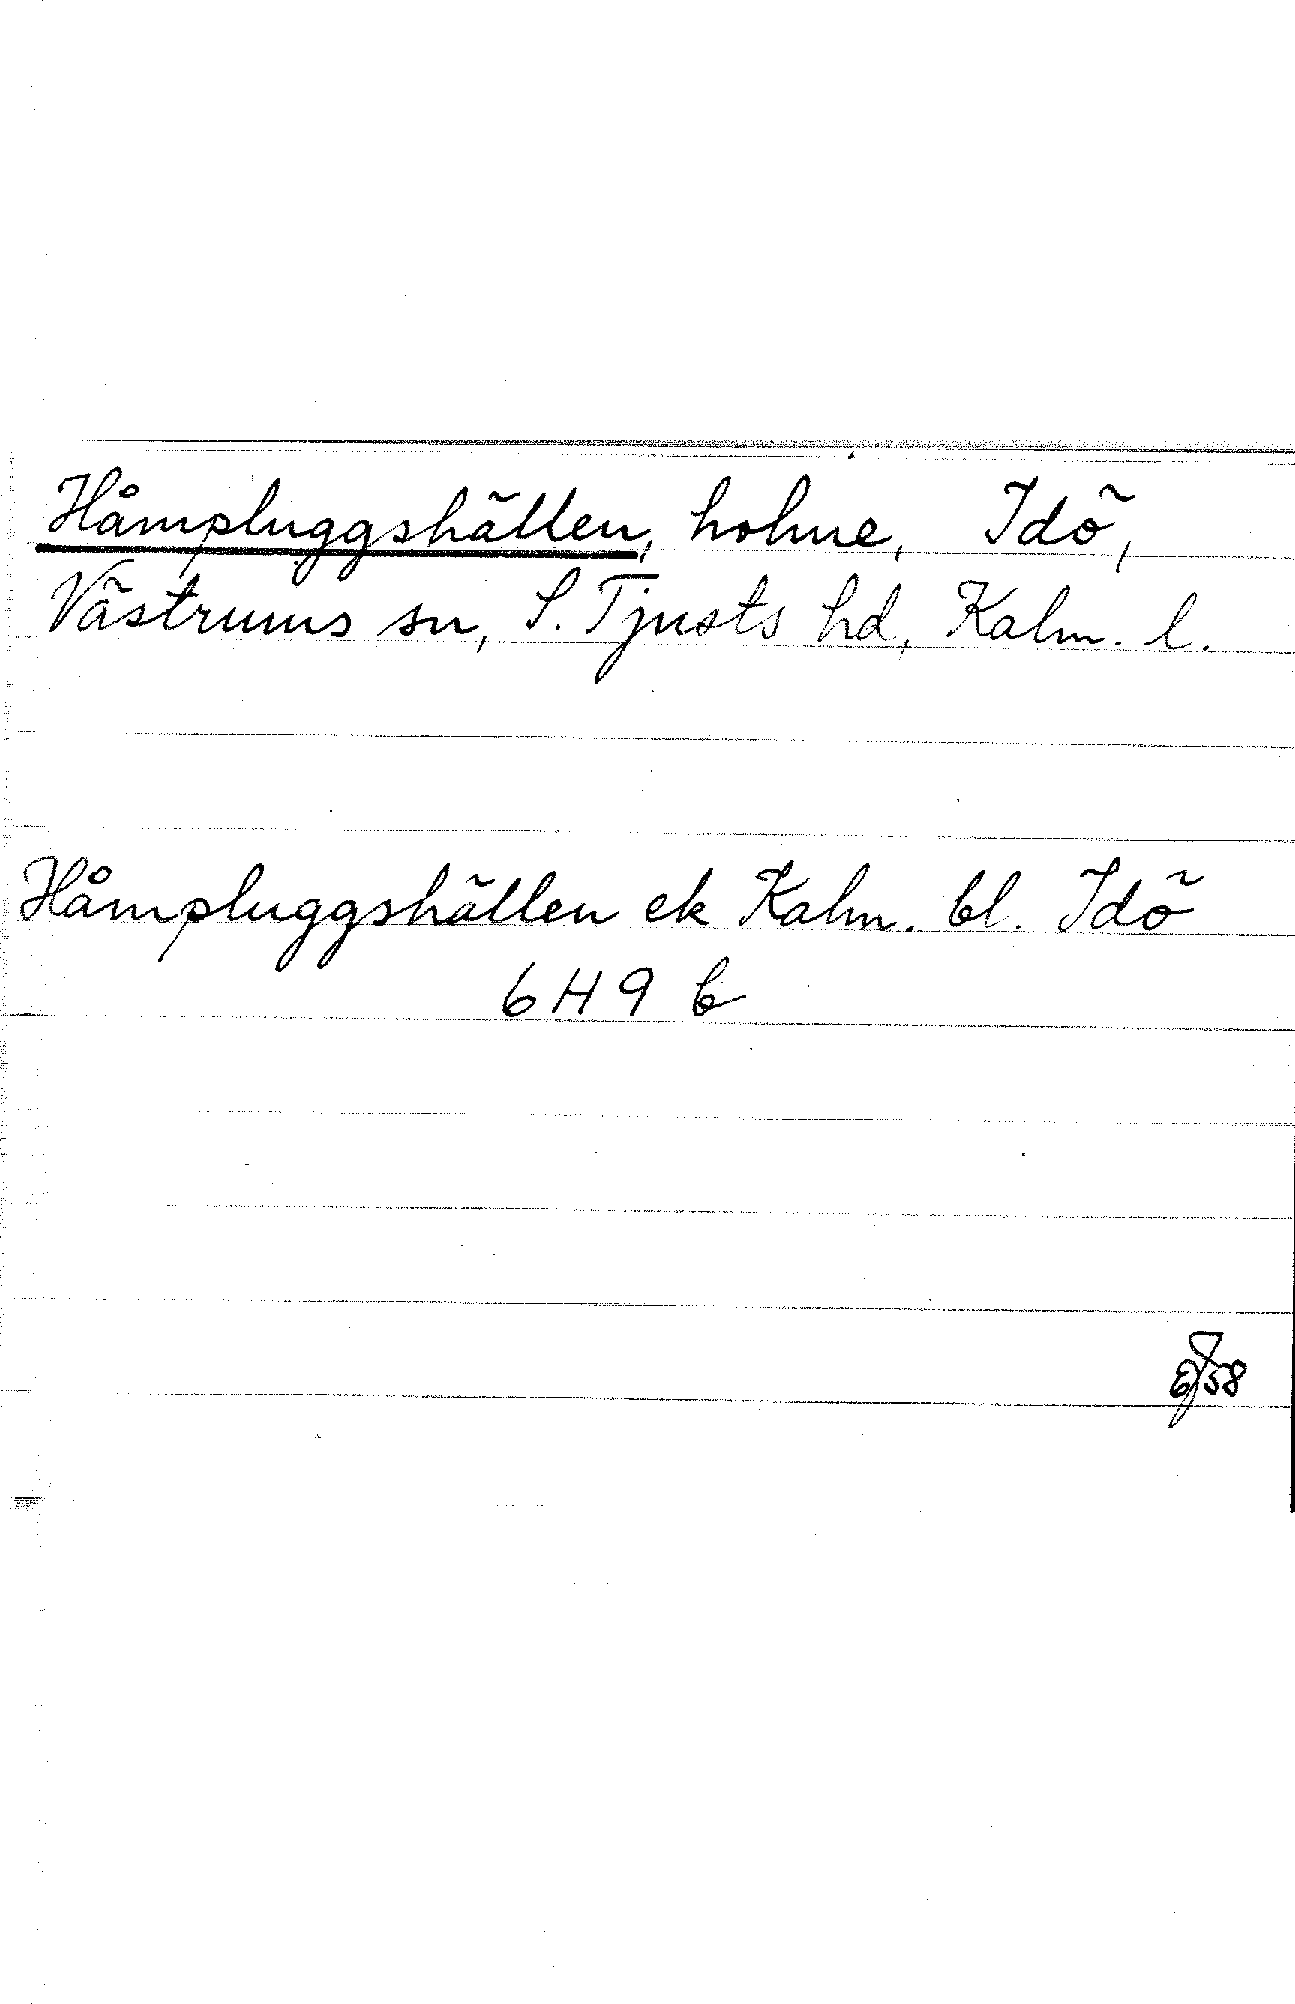 Håmpluggshällen, holme, Idö,
Västrums sn, S. Tjusts hd, Kalm. l.
Håmpluggshällen ek Kalm. bl. Idö
6H9 b